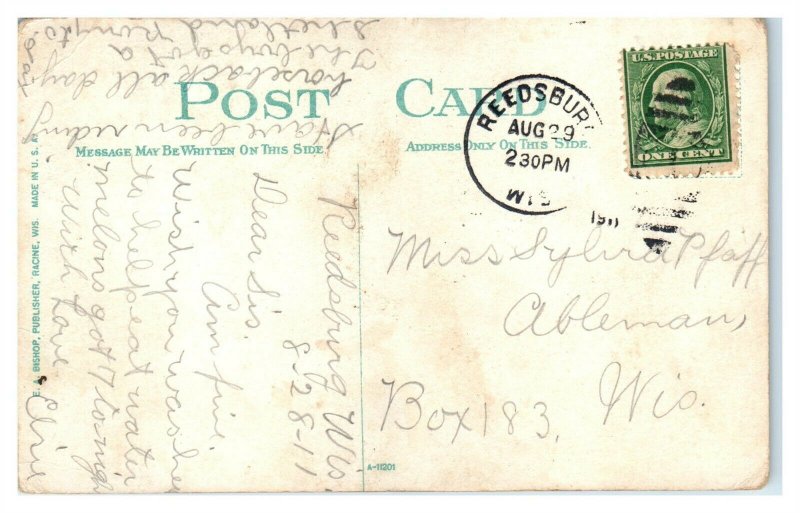 POST CARD
MESSAGE MAY BE WRITTEN ON THIS SIDE
ADDRESS ONLY ON THIS SIDE.
REEDSBUR
AUG 29
230PM
WIS
1911
U.S. POSTAGE
ONE CENT
Miss Sylvia Pfaff
Ableman,
Wis.
Box 183,
Reedsburg Wis.
8-28-11
Dear Sis.
Am fine
Wish you was her
to help eat water
melons got 7 to nigh
With Love
Have been riding
horseback all day
The boys got a
Shetland Pony to
BISHOP, PUBLISHER, RACINE, WIS. MADE IN U. S. A.
A-11201